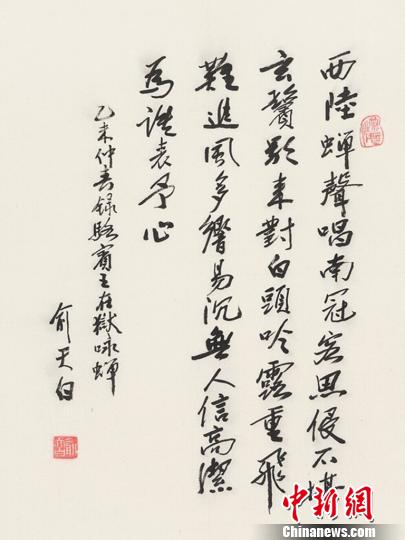 西陸蝉聲唱南冠客思侵不堪
玄鬢影来對白頭吟露重飛
難進風多響易沉無人信高潔
為誰表予心
乙未仲春録駱賓王在獄咏蝉
俞天白
中新网
Chinanews.com